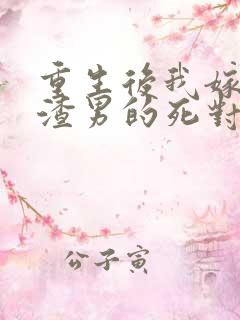 重生後我嫁
渣男的死對
公子寅